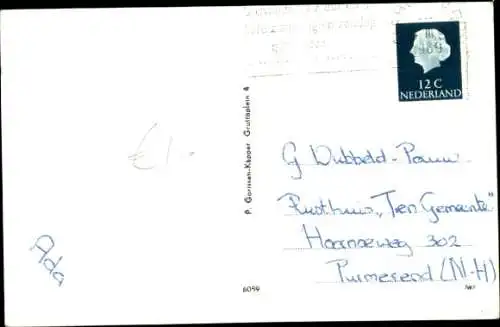 1969
12 C
NEDERLAND
P. Gorrissen-Käpper Gruttoplein 4
€1,-
G Dubbeld-Pauw
Rusthuis „Ten Gemeente"
Hoornseweg 302
Purmerend (N-H)
Ada
6059